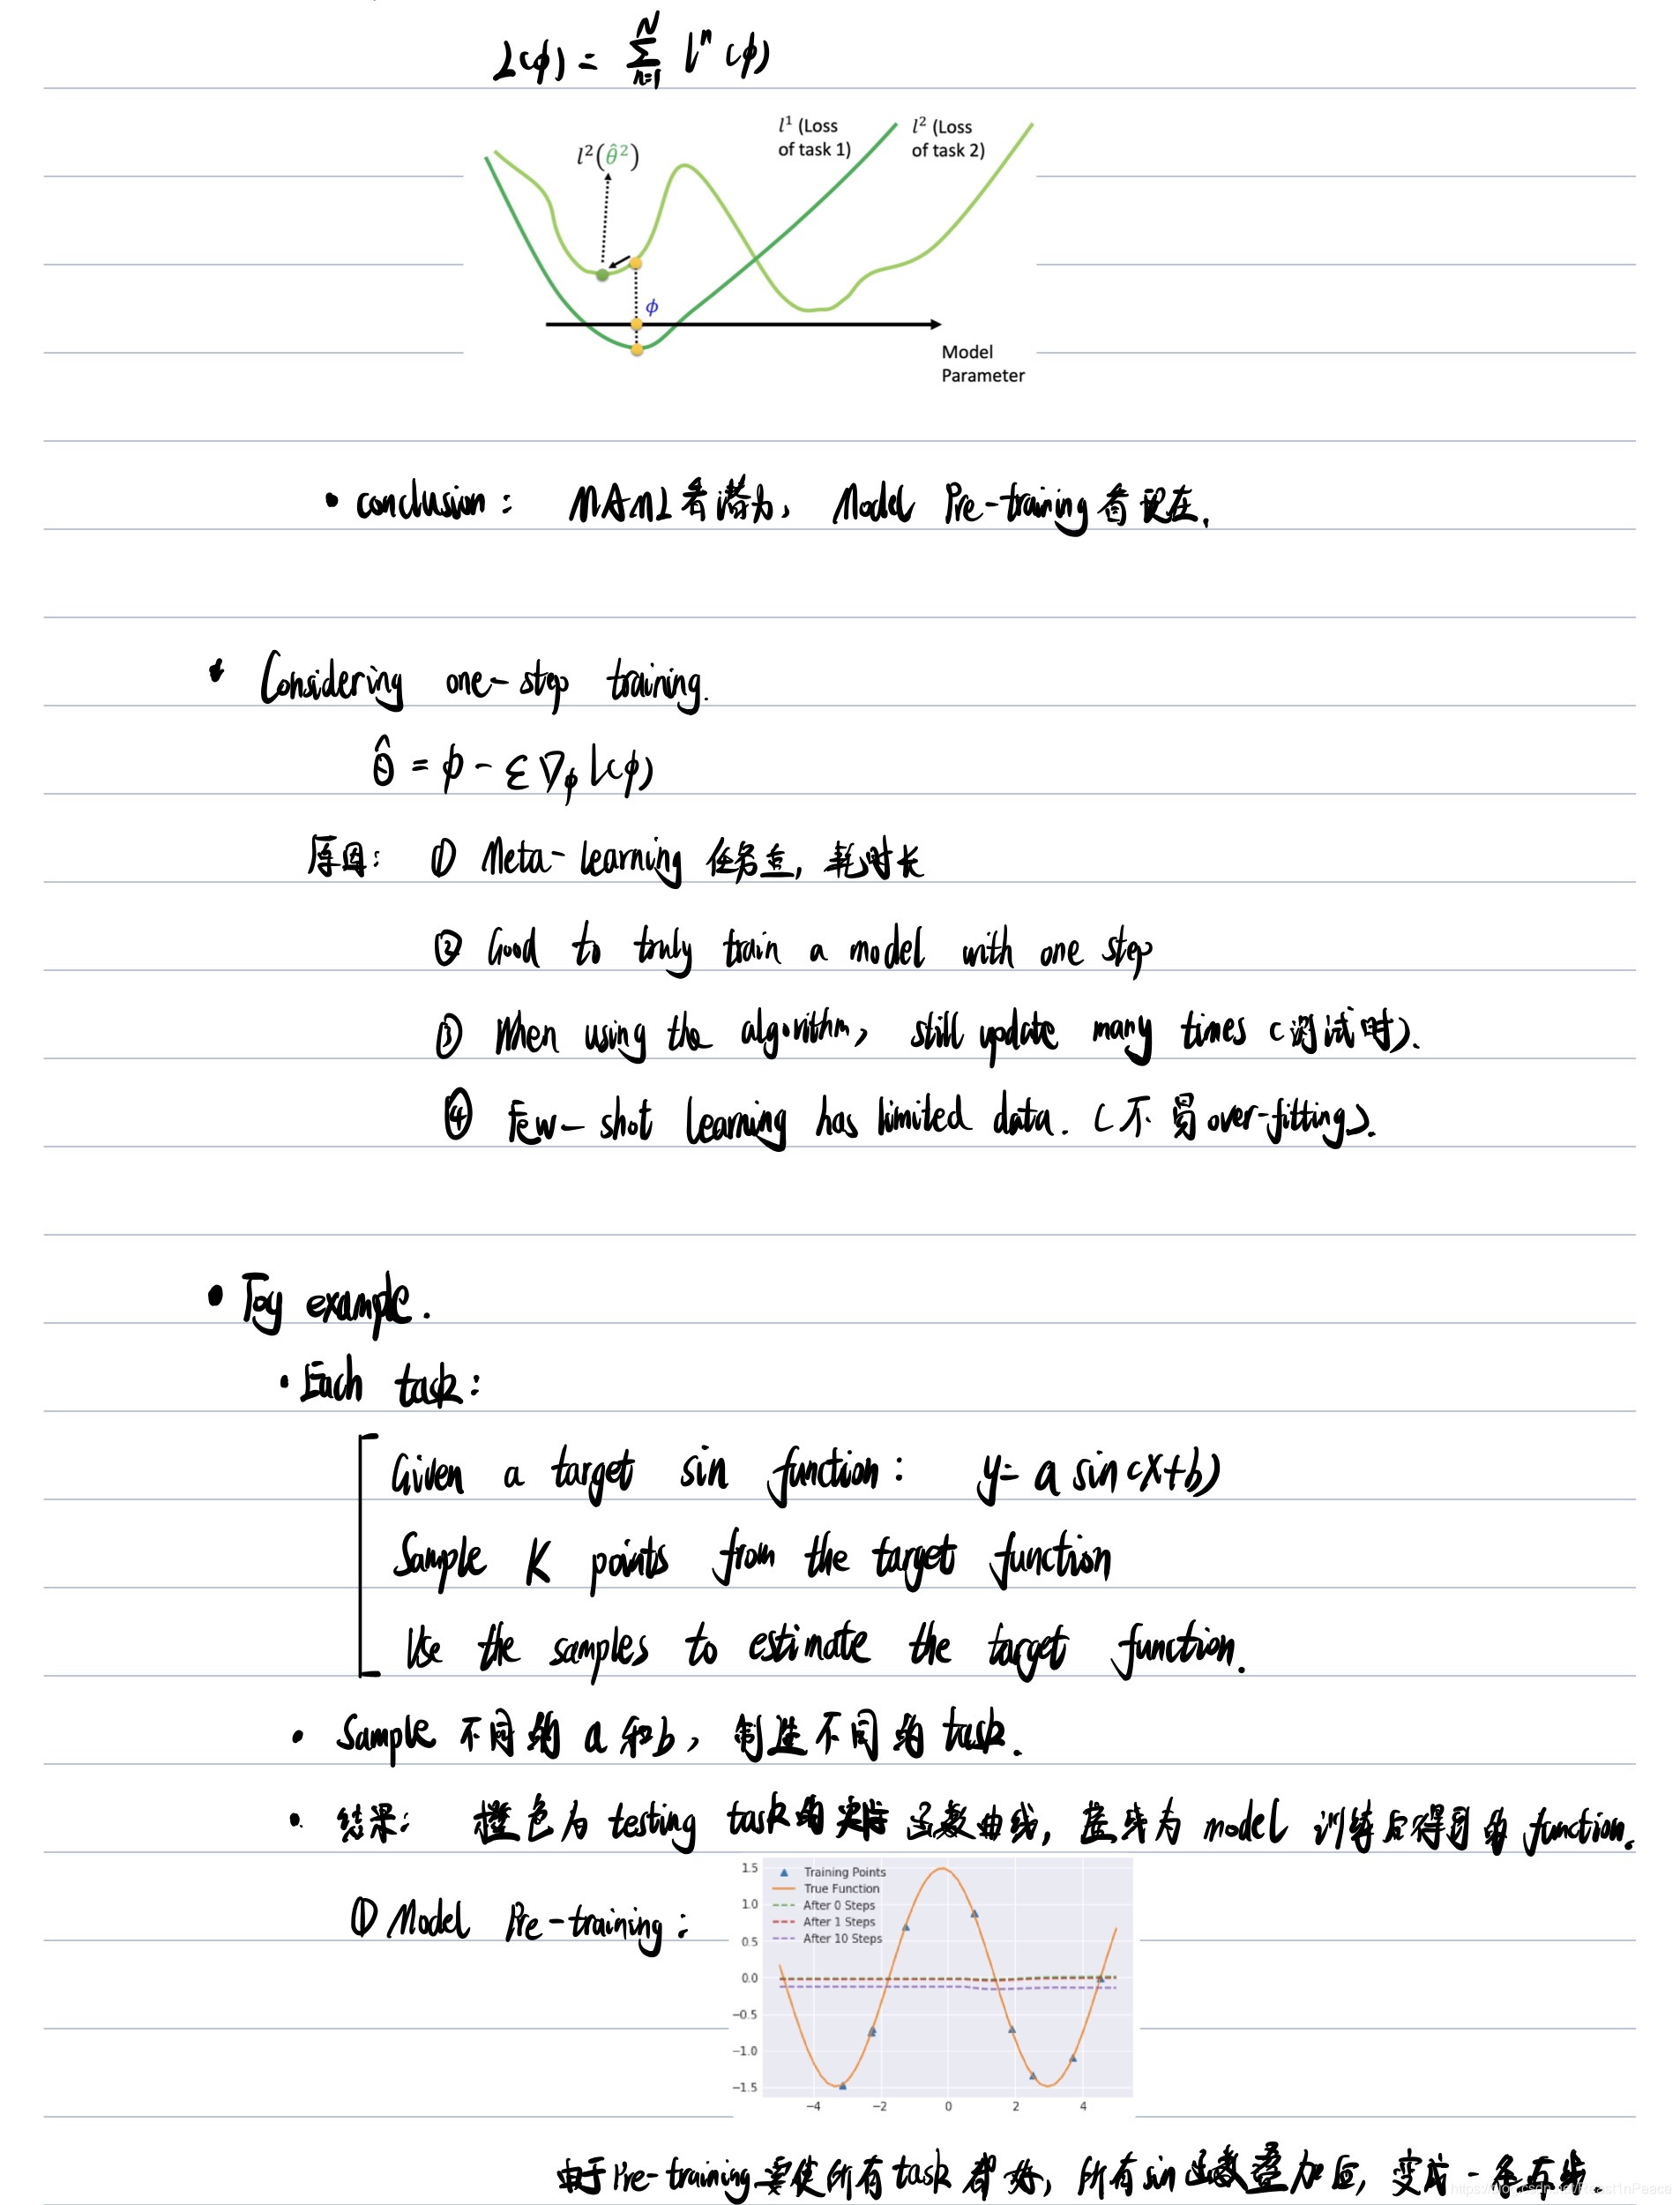 L(φ) = Σ_{n=1}^{N} l^n (φ)
l¹ (Loss of task 1)
l² (Loss of task 2)
l²(θ̂²)
φ
Model Parameter
• conclusion: MAML看潜力, Model Pre-training看现在.
• Considering one-step training.
θ̂ = φ - ε ∇_φ l(φ)
原因: ① Meta-learning 任务重, 耗时长
② Good to truly train a model with one step
③ When using the algorithm, still update many times (测试时).
④ Few-shot learning has limited data. (不易over-fitting).
• Toy example.
• Each task:
Given a target sin function: y= a sin(x+b)
Sample K points from the target function
Use the samples to estimate the target function.
• Sample 不同的 a 和b, 制造不同的 task.
• 结果: 橙色为 testing task的实际函数曲线, 虚线为 model 训练后得到的 function.
① Model Pre-training:
Training Points
True Function
After 0 Steps
After 1 Steps
After 10 Steps
1.5
1.0
0.5
0.0
−0.5
−1.0
−1.5
−4 −2 0 2 4
由于Pre-training要使所有task都好, 所有sin函数叠加后, 变成一条直线